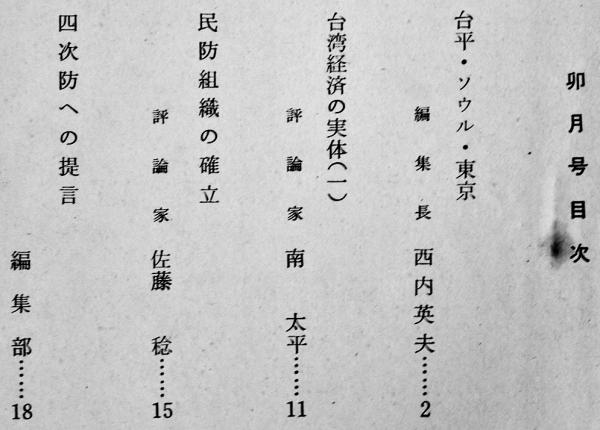 卯月号目次
台平・ソウル・東京
編集長 西内英夫……2
台湾経済の実体(一)
評論家 南 太平……11
民防組織の確立
評論家 佐藤 稔……15
四次防への提言
編集部……18